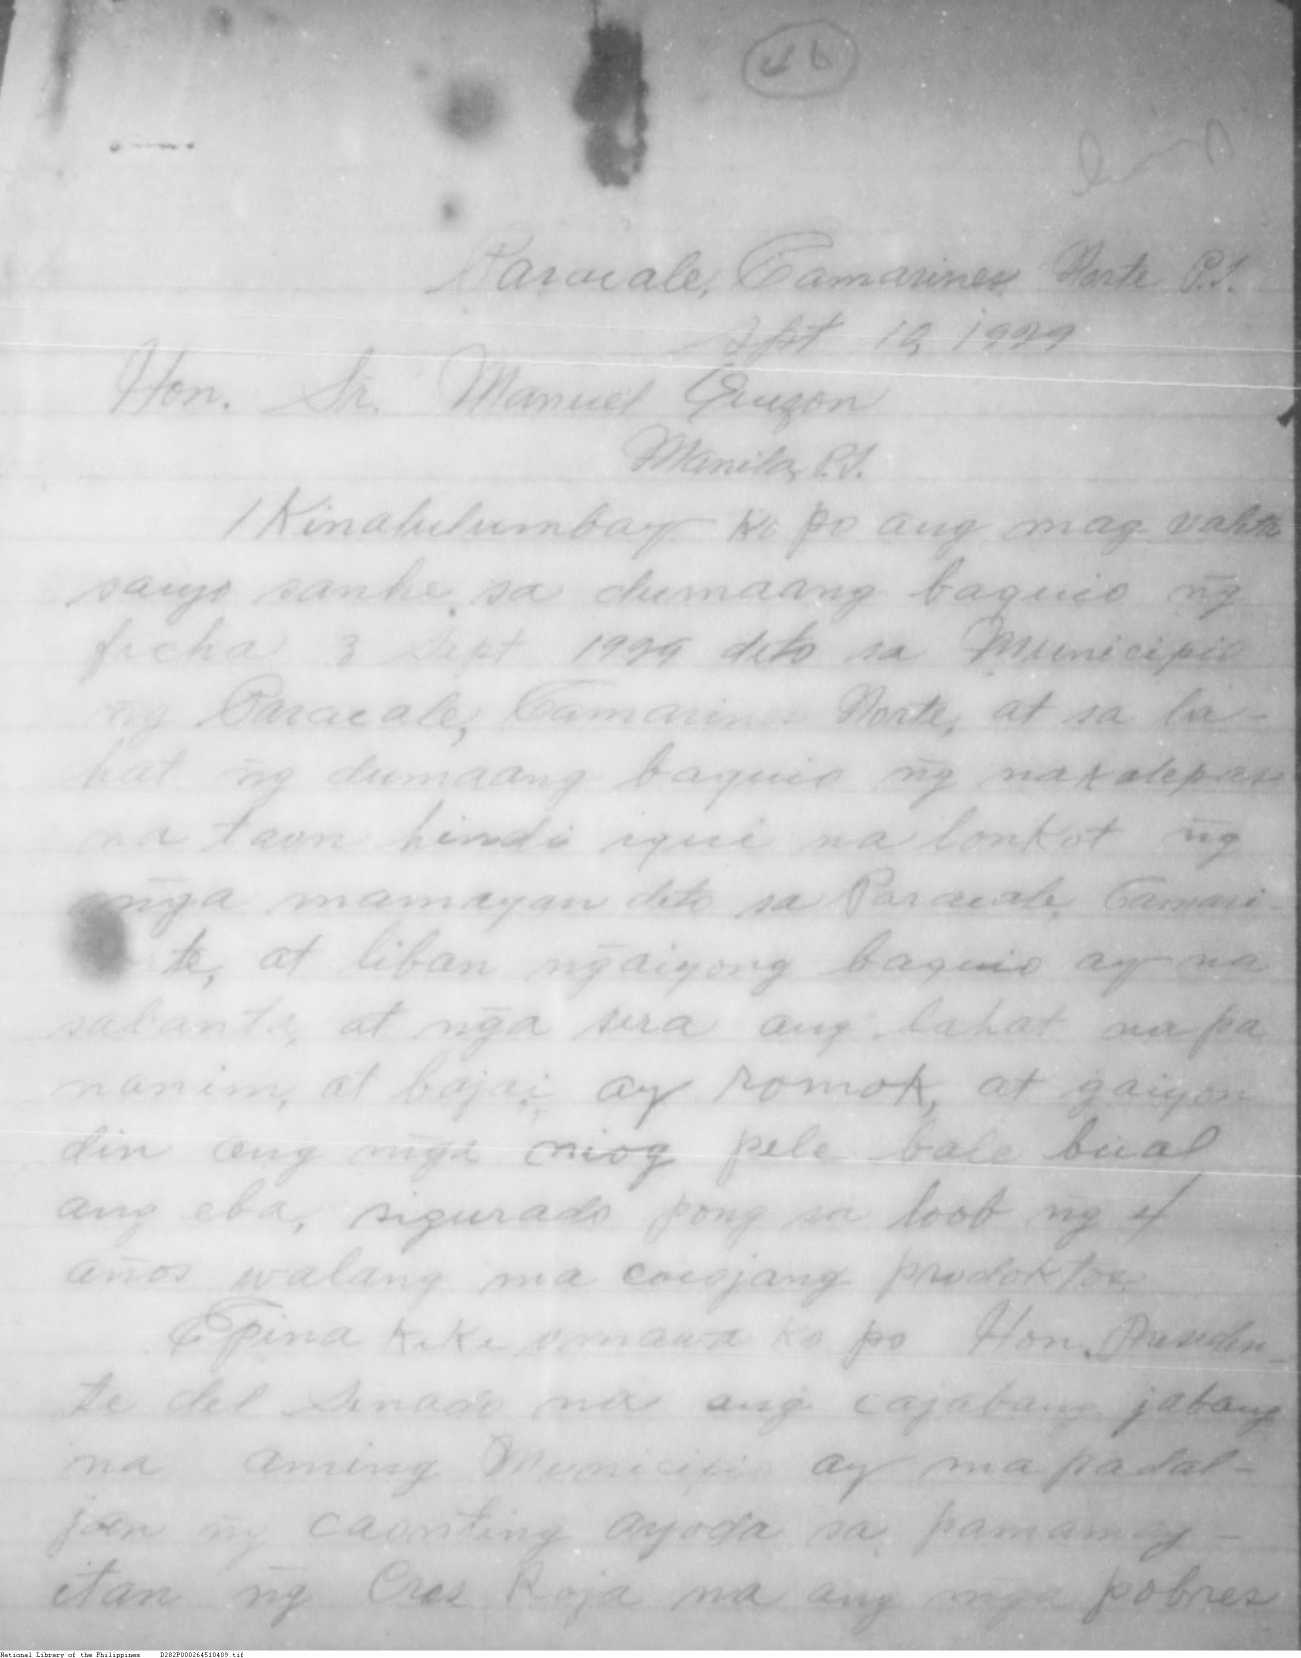 46
Paracale, Camarines Norte P.I.
Sept 10, 1929
Hon. Sr. Manuel Quezon
Manila, P.I.
Kinalulumbay ko po ang mag
sa dumaang baguio n̄g
fecha 3 Sept 1929 dito sa Municipio
n̄g Paracale, Camarines Norte, at sa la-
hat n̄g dumaang baguio n̄g nakalepas
na taon hindi iqui na lonkot n̄g
mn̄ga mamayan dito sa Paracale, Camari-
te, at liban n̄gaiyong baguio ay na
salanta, at n̄ga sera ang lahat na pa
nanim, at bajai, ay romok, at gaiyon
din ang mn̄ga niog pele bale bual
ang eba, sigurado pong sa loob n̄g 4
años walang ma coojang prodoktos
Epina kiki omawa ko po Hon. Presiden-
te del Senado na ang cajabang jabang
na aming Municipio ay ma padal-
jan n̄g caonting ayoda sa pamamag-
itan n̄g Cros Roja na ang mn̄ga pobres
National Library of the Philippines D282P000264510409.tif